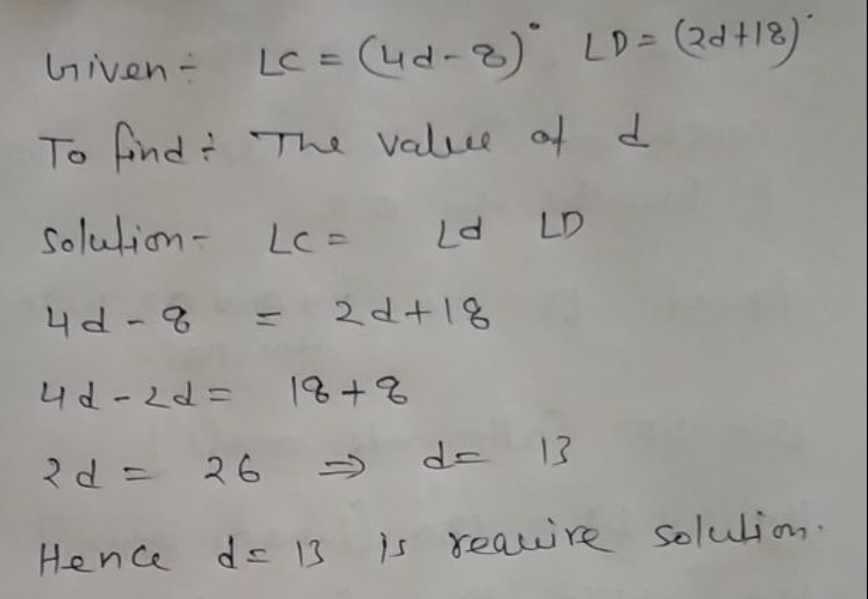 Given÷ ∠C = (4d-8)° ∠D = (2d+18)°
To find÷ The value of d
Solution- ∠C = ∠d ∠D
4d - 8 = 2d+18
4d - 2d = 18+8
2d = 26 ⇒ d = 13
Hence d = 13 is reauire solution.